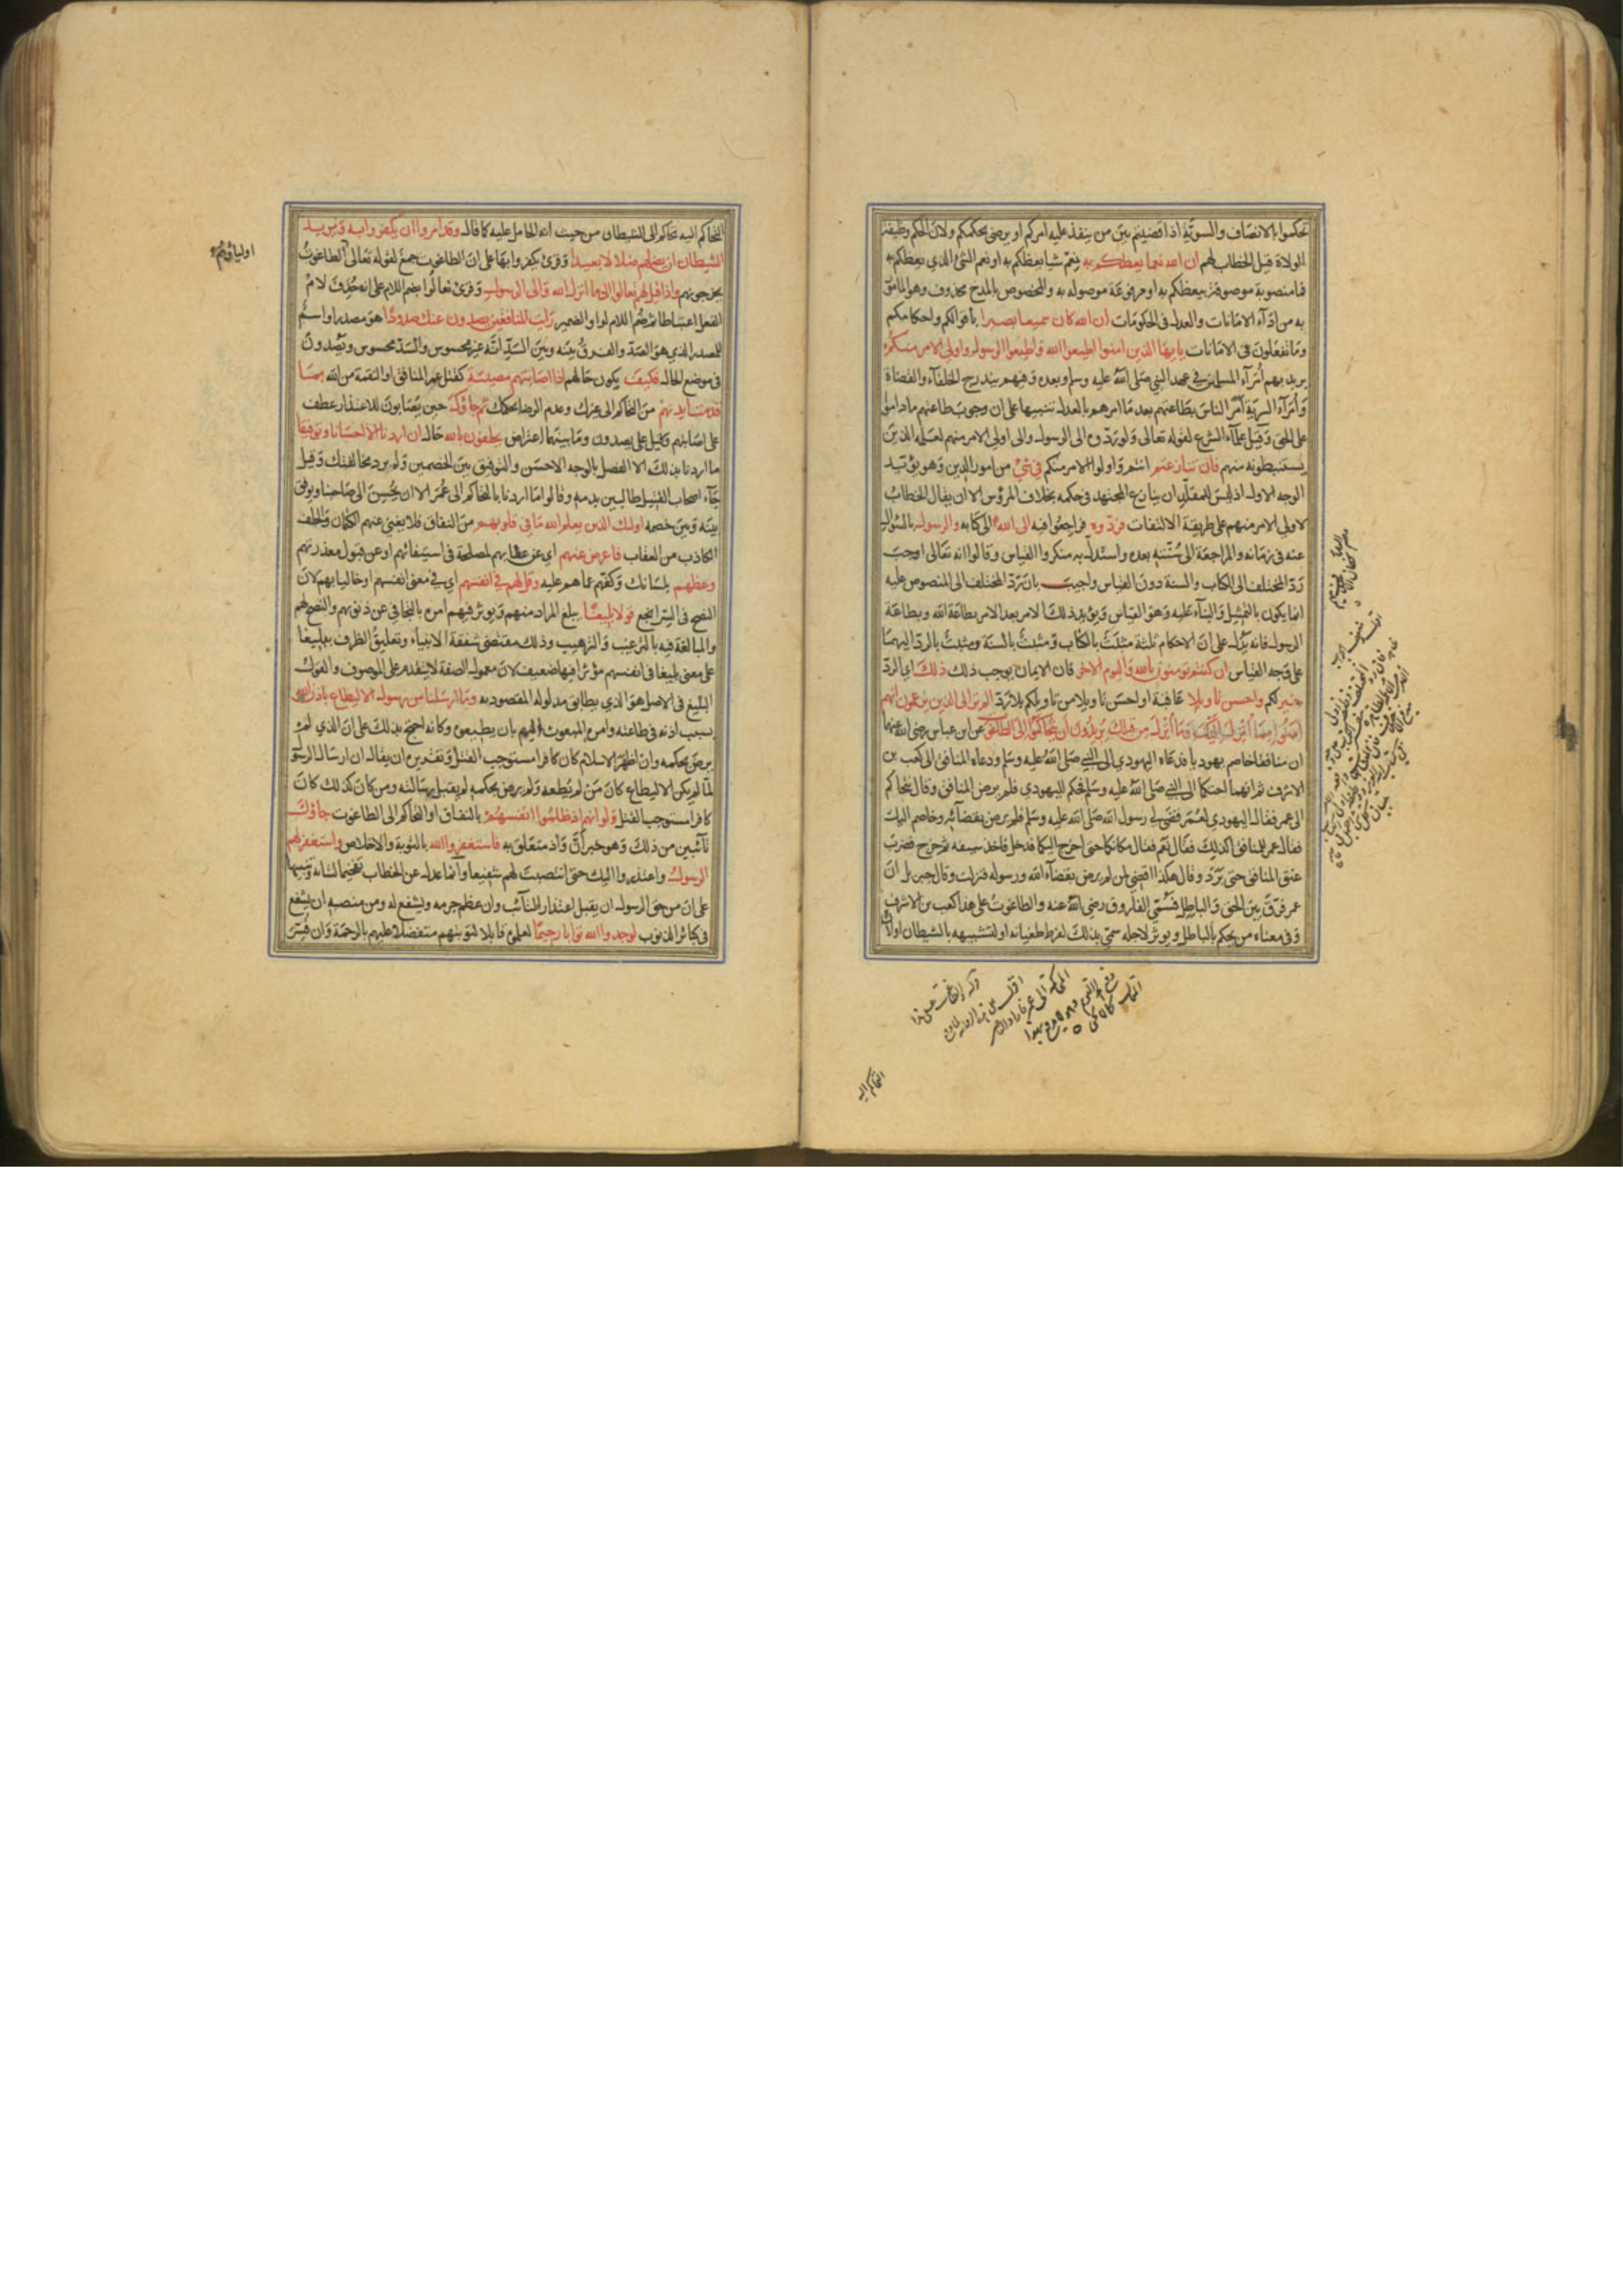 تحكموا بالانصاف والسوية اذا قضيتم بين من ينفذ عليه امركم او يرضى بحكمكم ولان الحكم وظيفة
الولاة قيل الخطاب لهم ان الله نعما يعظكم به نعم شيا يعظكم به او نعم الشئ الذي يعظكم به
فما منصوبة موصوفة بيعظكم به او مرفوعة موصوله به والمخصوص بالمدح محذوف وهو المامور
به من اداء الامانات والعدل فى الحكومات ان الله كان سميعا بصيرا باقوالكم واحكامكم
وما تفعلون فى الامانات يا ايها الذين امنوا اطيعوا الله واطيعوا الرسول واولي الامر منكم
يريد بهم أمرآء المسلمين في عهد النبي صلى الله عليه وسلم وبعده وفيهم يندرج الخلفآء والقضاة
وأمرآء السرية أمر الناس بطاعتهم بعد ما امرهم بالعدل تنبيها على ان وجوب طاعتهم ما داموا
على الحق وقيل علمآء الشرع لقوله تعالى ولو ردوه الى الرسول والى اولي الامر منهم لعلمه الذين
يستنبطونه منهم فان تنازعتم انتم واولوا الامر منكم في شئ من امور الدين وهو يؤيد
الوجه الاول اذ ليس للمقلد ان ينازع المجتهد فى حكمه بخلاف المرؤس الا ان يقال الخطاب
لاولي الامر منهم على طريقة الالتفات فردوه فراجعوا فيه الى الله الى كتابه والرسول بالسؤال
عنه فى زمانه والمراجعة الى سنته بعده واستدل به منكروا القياس وقالوا انه تعالى اوجب
رد المختلف الى الكتاب والسنة دون القياس واجيب بان رد المختلف الى المنصوص عليه
انما يكون بالتمثيل والبنآء عليه وهو القياس ويؤيد ذلك الامر بعد الامر بطاعة الله وبطاعة
الرسول فانه يدل على ان الاحكام ثلثة مثبت بالكتاب ومثبت بالسنة ومثبت بالرد اليهما
على وجه القياس ان كنتم تومنون بالله واليوم الاخر فان الايمان يوجب ذلك ذلك اي الرد
خير لكم واحسن تاويلا عاقبة او احسن تاويلا من تاويلكم بلا رد الم تر الى الذين يزعمون انهم
آمنوا بما أنزل إليك وما أنزل من قبلك يريدون أن يتحاكموا إلى الطاغوت عن ابن عباس رضى الله عنهما
ان منافقا خاصم يهوديا فدعاه اليهودي الى النبي صلى الله عليه وسلم ودعاه المنافق الى كعب بن
الاشرف ثم انهما احتكما الى النبي صلى الله عليه وسلم فحكم لليهودي فلم يرض المنافق وقال نتحاكم
الى عمر فقال اليهودي لعمر قضى لي رسول الله صلى الله عليه وسلم فلم يرض بقضآئه وخاصم اليك
فقال عمر للمنافق اكذلك فقال نعم فقال مكانكما حتى اخرج اليكما فدخل فاخذ سيفه ثم خرج فضرب
عنق المنافق حتى برد وقال هكذا اقضي لمن لم يرض بقضآء الله ورسوله فنزلت وقال جبريل ان
عمر فرق بين الحق والباطل فسمي الفاروق رضي الله عنه والطاغوت على هذا كعب بن الاشرف
وفى معناه من يحكم بالباطل ويوثر لاجله سمى بذلك لفرط طغيانه او لتشبيهه بالشيطان او لان
التحاكم اليه
التحاكم اليه تحاكم الى الشيطان من حيث انه الحامل عليه كما قال وقد امروا ان يكفروا به ويريد
الشيطان ان يضلهم ضلالا بعيدا وقرئ يكفروا بها على ان الطاغوت جمع لقوله تعالى الطاغوت
اولياؤهم
يخرجونهم واذا قيل لهم تعالوا الى ما انزل الله والى الرسول وقرئ تعالوا بضم اللام على انه حذف لام
الفعل اعتباطا ثم ضم اللام لواو الضمير رايت المنافقين يصدون عنك صدودا هو مصدر او اسم
للمصدر الذي هو الصد والفرق بينه وبين السد انه غير محسوس والسد محسوس ويصدون
فى موضع الحال فكيف يكون حالهم اذا اصابتهم مصيبة كقتل عمر المنافق او النقمة من الله بما
قدمت ايديهم من التحاكم الى غيرك وعدم الرضا بحكمك ثم جاؤك حين يصابون للاعتذار عطف
على اصابتهم وقيل على يصدون وما بينهما اعتراض يحلفون بالله حال ان اردنا الا احسانا وتوفيقا
ما اردنا بذلك الا الفصل بالوجه الاحسن والتوفيق بين الخصمين ولم نرد مخالفتك وقيل
جآء اصحاب القتيل طالبين بدمه وقالوا ما اردنا بالتحاكم الى عمر الا ان يحسن الى صاحبنا ويوفق
بينه وبين خصمه اولئك الذين يعلم الله ما في قلوبهم من النفاق فلا يغني عنهم الكتمان والحلف
الكاذب من العقاب فاعرض عنهم أي عن عقابهم لمصلحة فى استبقائهم او عن قبول معذرتهم
وعظهم بلسانك وكفهم عما هم عليه وقل لهم في انفسهم اي في معنى انفسهم او خاليا بهم لان
النصح فى السر انجع قولا بليغا يبلغ المراد منهم ويوثر فيهم امره بالتجافي عن ذنوبهم والنصح لهم
والمبالغة فيه بالترغيب والترهيب وذلك مقتضى شفقة الانبياء وتعليق الظرف ببليغا
على معنى بليغا فى انفسهم مؤثرا فيها ضعيف لان معمول الصفة لا يتقدم على الموصوف والقول
البليغ فى الاصل هو الذي يطابق مدلوله المقصود به وما ارسلنا من رسول الا ليطاع باذن الله
بسبب اذنه فى طاعته وامره المبعوث اليهم بان يطيعوه وكانه احتج بذلك على ان الذي لم
يرض بحكمه وان اظهر الاسلام كان كافرا مستوجب القتل وتقديره ان يقال ان ارسال الرسول
لما لم يكن الا ليطاع كان من لم يطعه ولم يرض بحكمه لم يقبل رسالته ومن كان كذلك كان
كافرا مستوجب القتل ولو انهم اذ ظلموا انفسهم بالنفاق او التحاكم الى الطاغوت جاؤك
تآئبين من ذلك وهو خبر أن واذ متعلق به فاستغفروا الله بالتوبة والاخلاص واستغفر لهم
الرسول واعتذروا اليك حتى انتصبت لهم شفيعا وانما عدل عن الخطاب تفخيما لشانه وتنبيها
على ان من حق الرسول ان يقبل اعتذار التآئب وان عظم جرمه ويشفع له ومن منصبه ان يشفع
فى كبائر الذنوب لوجدوا الله توابا رحيما لعلموه قابلا لتوبتهم متفضلا عليهم بالرحمة وان فسر